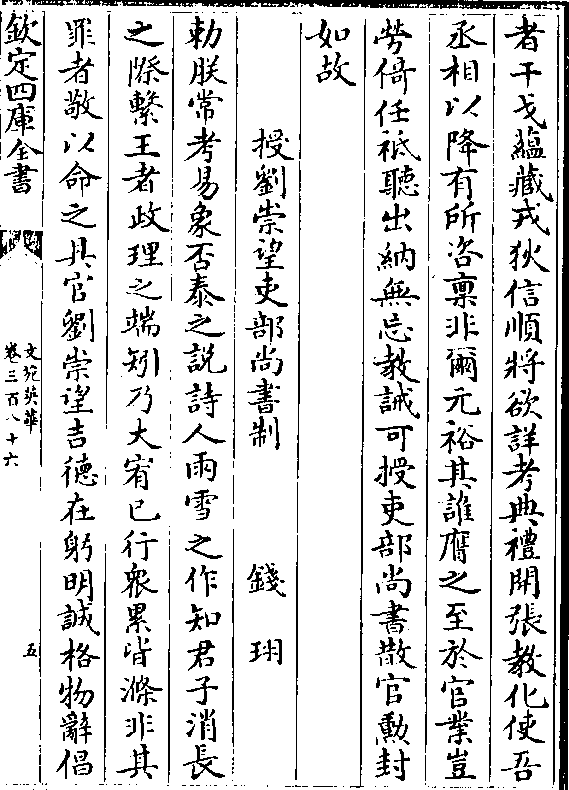 者干戈蘊藏戎狄信順將欲詳考典禮開張教化使吾
丞相以降有所咨稟非爾元裕其誰膺之至於官業豈
勞倚任祗聽出納無忘教誡可授吏部尚書散官勲封
如故
授劉崇望吏部尚書制　錢珝
勅朕常考易象否泰之説詩人雨雪之作知君子消長
之際繫王者政理之端矧乃大宥已行衆累皆滌非其
罪者敬以命之具官劉崇望吉德在躬明誠格物辭倡
欽定四庫全書
文苑英華
卷三百八十六
五